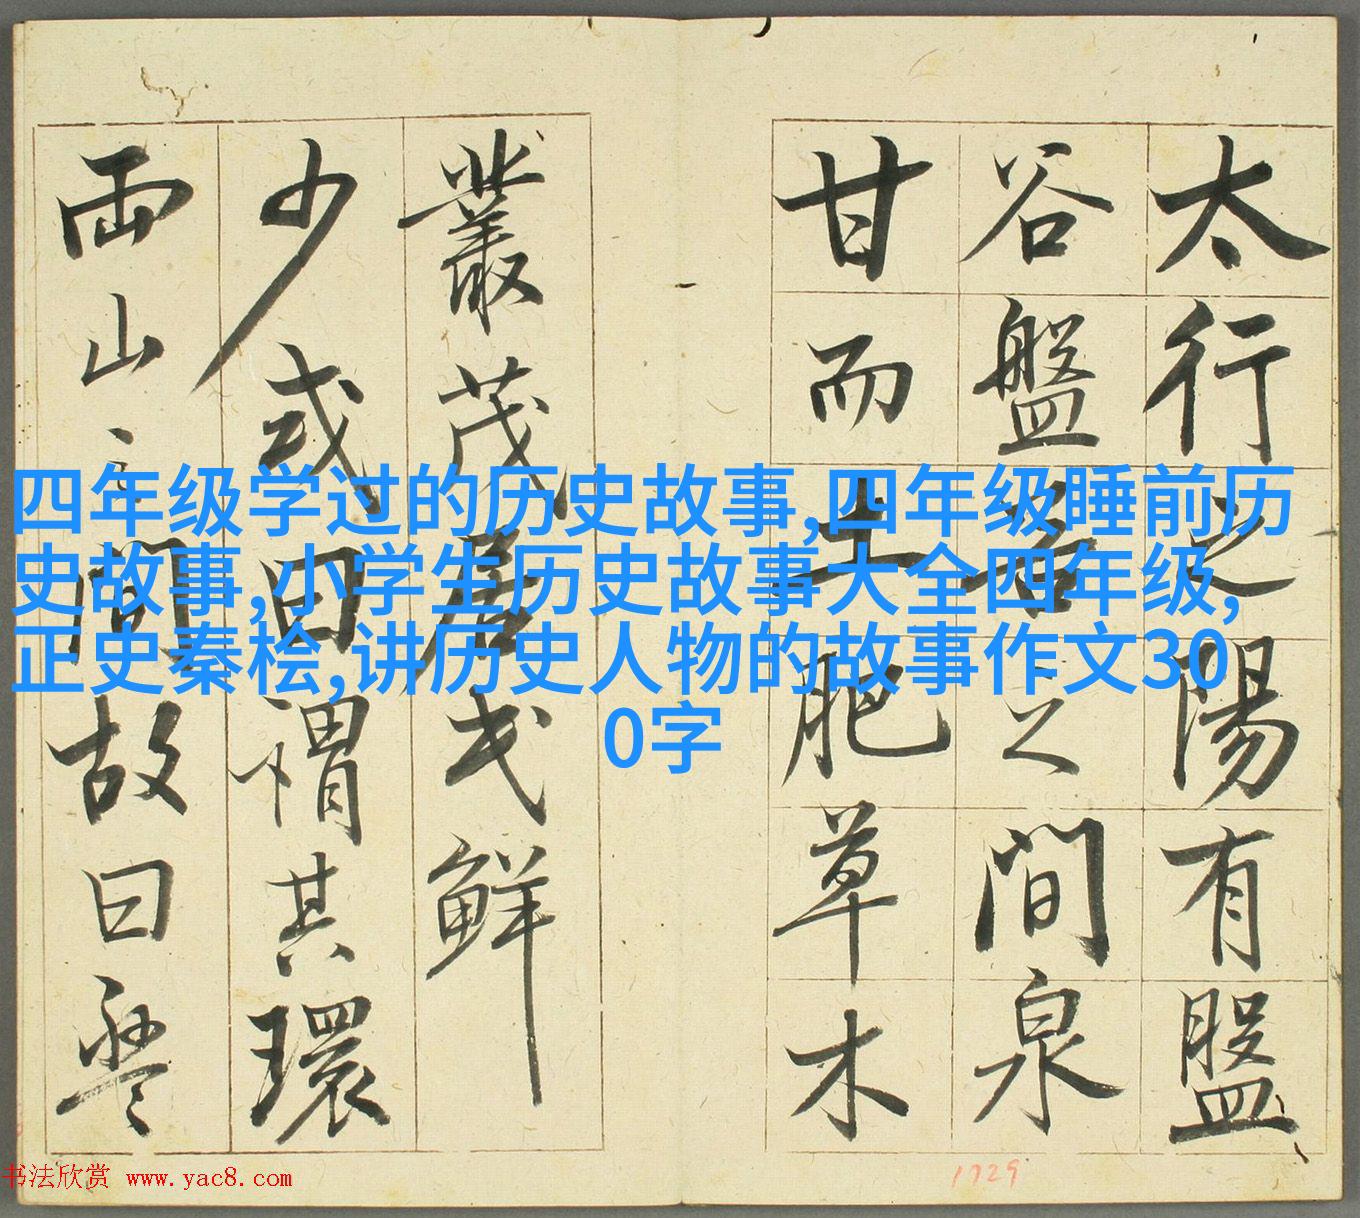 四年级学过的历史故事,四年级睡前历
史故事,小学生历史故事大全四年级,
正史秦桧,讲历史人物的故事作文30
0字
太行之陽有盤
谷盤谷之間泉
甘而土肥草木
叢茂居民鮮
少或曰謂其環
兩山之間故曰盤
书法欣赏 www.yac8.com
1729